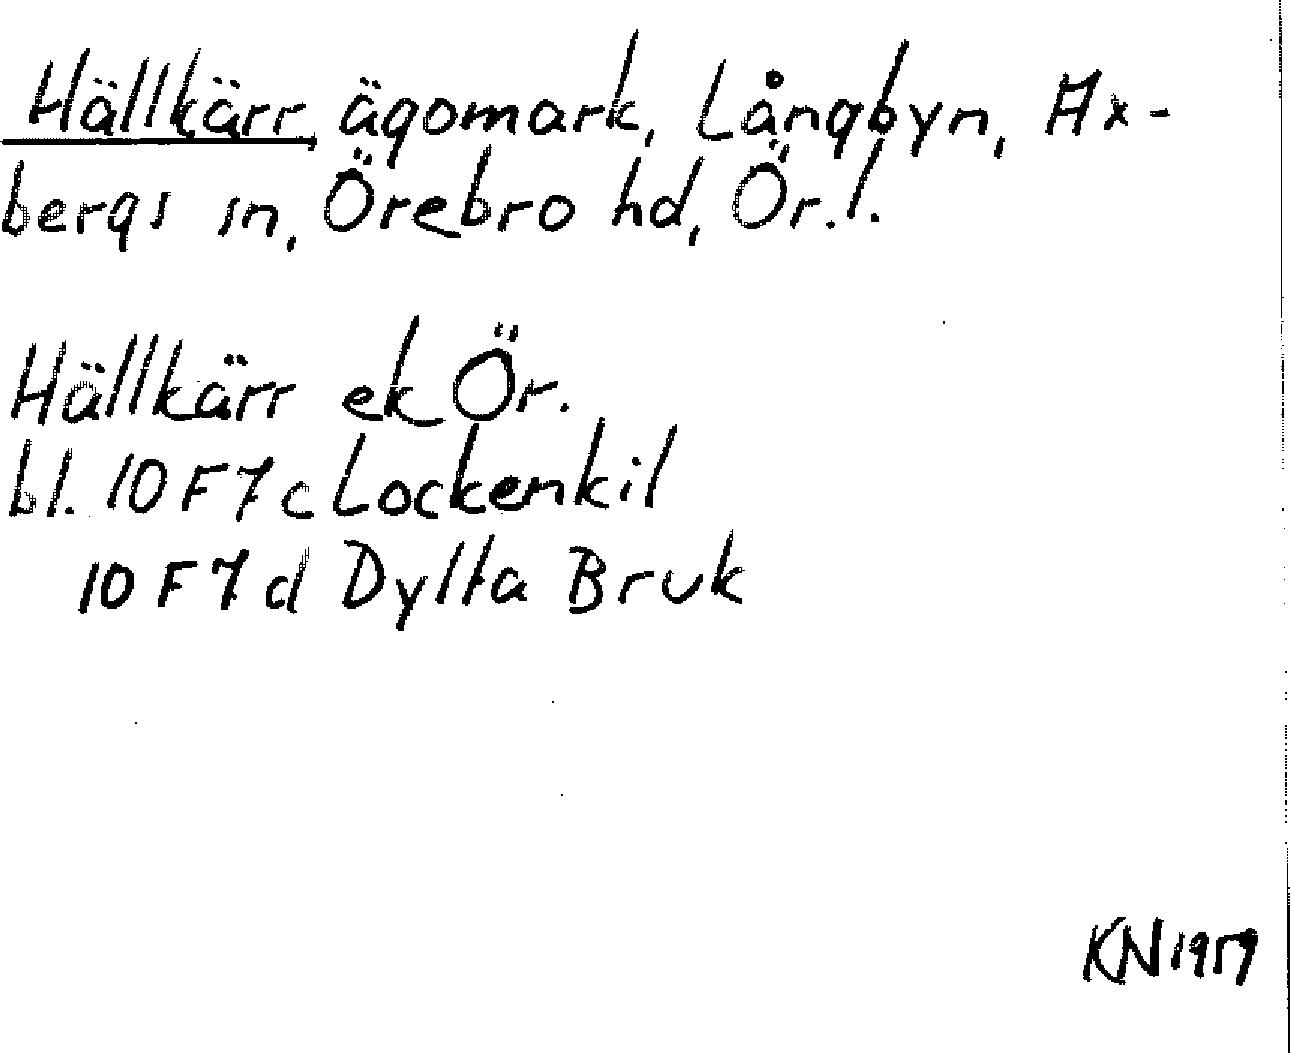 Hällkärr, ägomark, Långbyn, Ax-
bergs sn, Örebro hd, Ör.l.
Hällkärr ek Ör.
bl. 10 F 7 c Lockenkil
10 F 7 d Dylta Bruk
KN